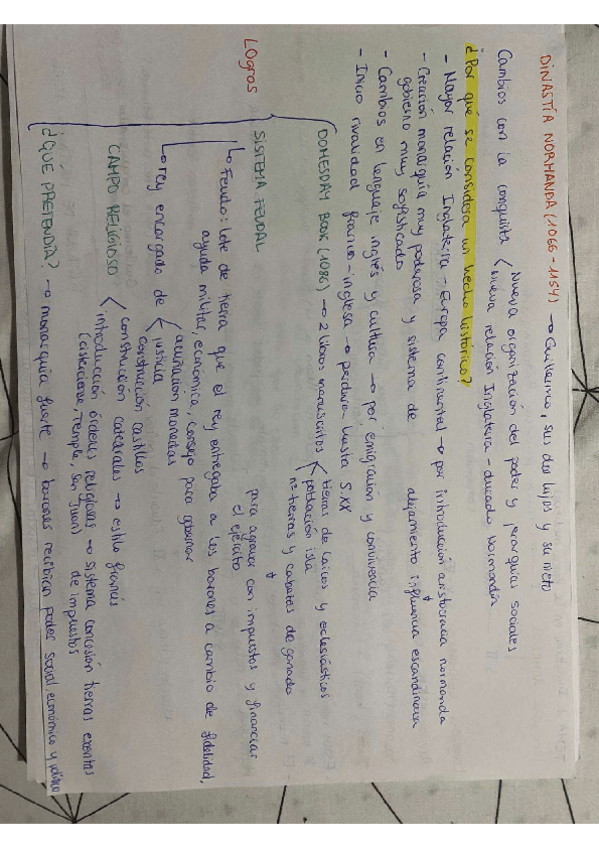 DINASTÍA NORMANDA (1066-1154) → Guillermo, sus dos hijos y su nieto
Cambios con la conquista < Nueva organización del poder y jerarquías sociales
Nueva relación Inglaterra-ducado Normandía
¿Por qué se considera un hecho histórico?
- Mayor relación Inglaterra-Europa continental → por introducción aristocracia normanda
↓
alejamiento influencia escandinava
- Creación monarquía muy poderosa y sistema de
gobierno muy sofisticado
- Cambios en lenguaje inglés y cultura → por emigración y convivencia
- Inicio rivalidad franco-inglesa → perdura hasta S.XX
Logros
DOMESDAY BOOK (1086) → 2 libros manuscritos < tierras de laicos y eclesiásticos
población isla
nº tierras y cabezas de ganado
↓
para agravar con impuestos y financiar
el ejército
SISTEMA FEUDAL
↳ Feudo: lote de tierra que el rey entregaba a los barones a cambio de fidelidad,
ayuda militar, económica, consejo para gobernar
↳ rey encargado de < acuñación monedas
justicia
construcción castillos
CAMPO RELIGIOSO < construcción catedrales → estilo francés
introducción órdenes religiosas → sistema concesión tierras exentas
(cisterciense, Temple, San Juan) de impuestos
¿QUÉ PRETENDÍA? → monarquía fuerte → barones recibían poder social, económico y político